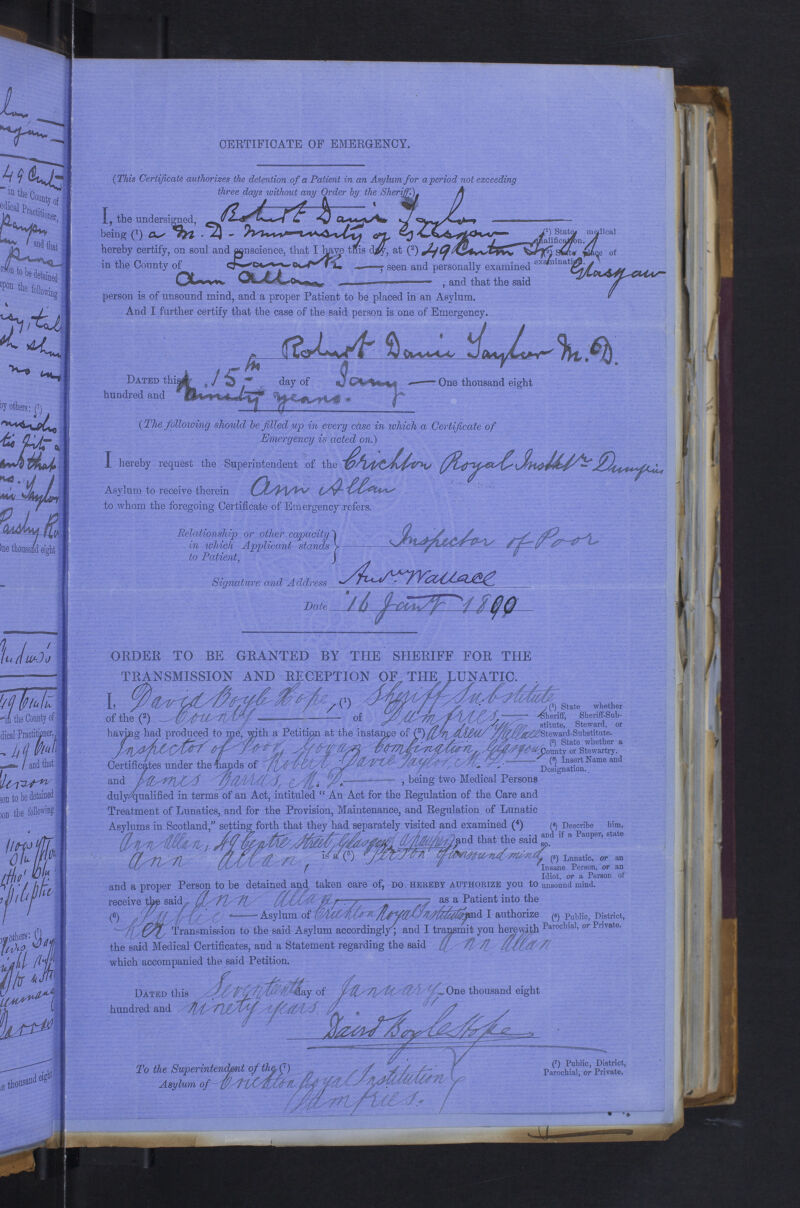 CERTIFICATE OF EMERGENCY.
(This Certificate authorizes the detention of a Patient in an Asylum for a period not exceeding
three days without any Order by the Sheriff.)
I, the undersigned, Robert Davie Taylor
being (¹) a M.D. University of Glasgow
(¹) State medical qualification.
hereby certify, on soul and conscience, that I have this day, at (²) 49 Centre St. S.S.
Glasgow
(²) State place of examination.
in the County of Lanark, seen and personally examined
Ann Allan, and that the said
person is of unsound mind, and a proper Patient to be placed in an Asylum.
And I further certify that the case of the said person is one of Emergency.
Robert Davie Taylor M.D.
DATED this 15th day of Jany One thousand eight
hundred and ninety years.
(The following should be filled up in every case in which a Certificate of
Emergency is acted on.)
I hereby request the Superintendent of the Crichton Royal Instittn Dumfries
Asylum to receive therein Ann Allan
to whom the foregoing Certificate of Emergency refers.
Relationship or other capacity
in which Applicant stands
to Patient, Inspector of Poor
Signature and Address Andw Wallace
Date 16 Jany 1890
ORDER TO BE GRANTED BY THE SHERIFF FOR THE
TRANSMISSION AND RECEPTION OF THE LUNATIC.
I, David Boyle Hope, (¹) Sheriff Substitute
of the (²) County of Dumfries,
having had produced to me, with a Petition at the instance of (³) Andrew Wallace
Inspector of Poor Govan Combination, Glasgow
Certificates under the hands of Robert Davie Taylor, M.D.
and James Barras, M.D., being two Medical Persons
duly qualified in terms of an Act, intituled "An Act for the Regulation of the Care and
Treatment of Lunatics, and for the Provision, Maintenance, and Regulation of Lunatic
Asylums in Scotland," setting forth that they had separately visited and examined (⁴)
Ann Allan, 49 Centre Street, Glasgow, a pauper and that the said
Ann Allan, is a (⁵) Person of unsound mind,
and a proper Person to be detained and taken care of, DO HEREBY AUTHORIZE you to
receive the said Ann Allan, as a Patient into the
(⁶) Public Asylum of Crichton Royal Institution and I authorize
her Transmission to the said Asylum accordingly; and I transmit you herewith
the said Medical Certificates, and a Statement regarding the said Ann Allan
which accompanied the said Petition.
(¹) State whether Sheriff, Sheriff-Substitute, Steward, or Steward-Substitute.
(²) State whether a County or Stewartry.
(³) Insert Name and Designation.
(⁴) Describe him, and if a Pauper, state so.
(⁵) Lunatic, or an Insane Person, or an Idiot, or a Person of unsound mind.
(⁶) Public, District, Parochial, or Private.
DATED this Seventeenth day of January, One thousand eight
hundred and ninety years.
David Boyle Hope
To the Superintendent of the (⁷)
Asylum of Crichton Royal Institution
Dumfries.
(⁷) Public, District, Parochial, or Private.